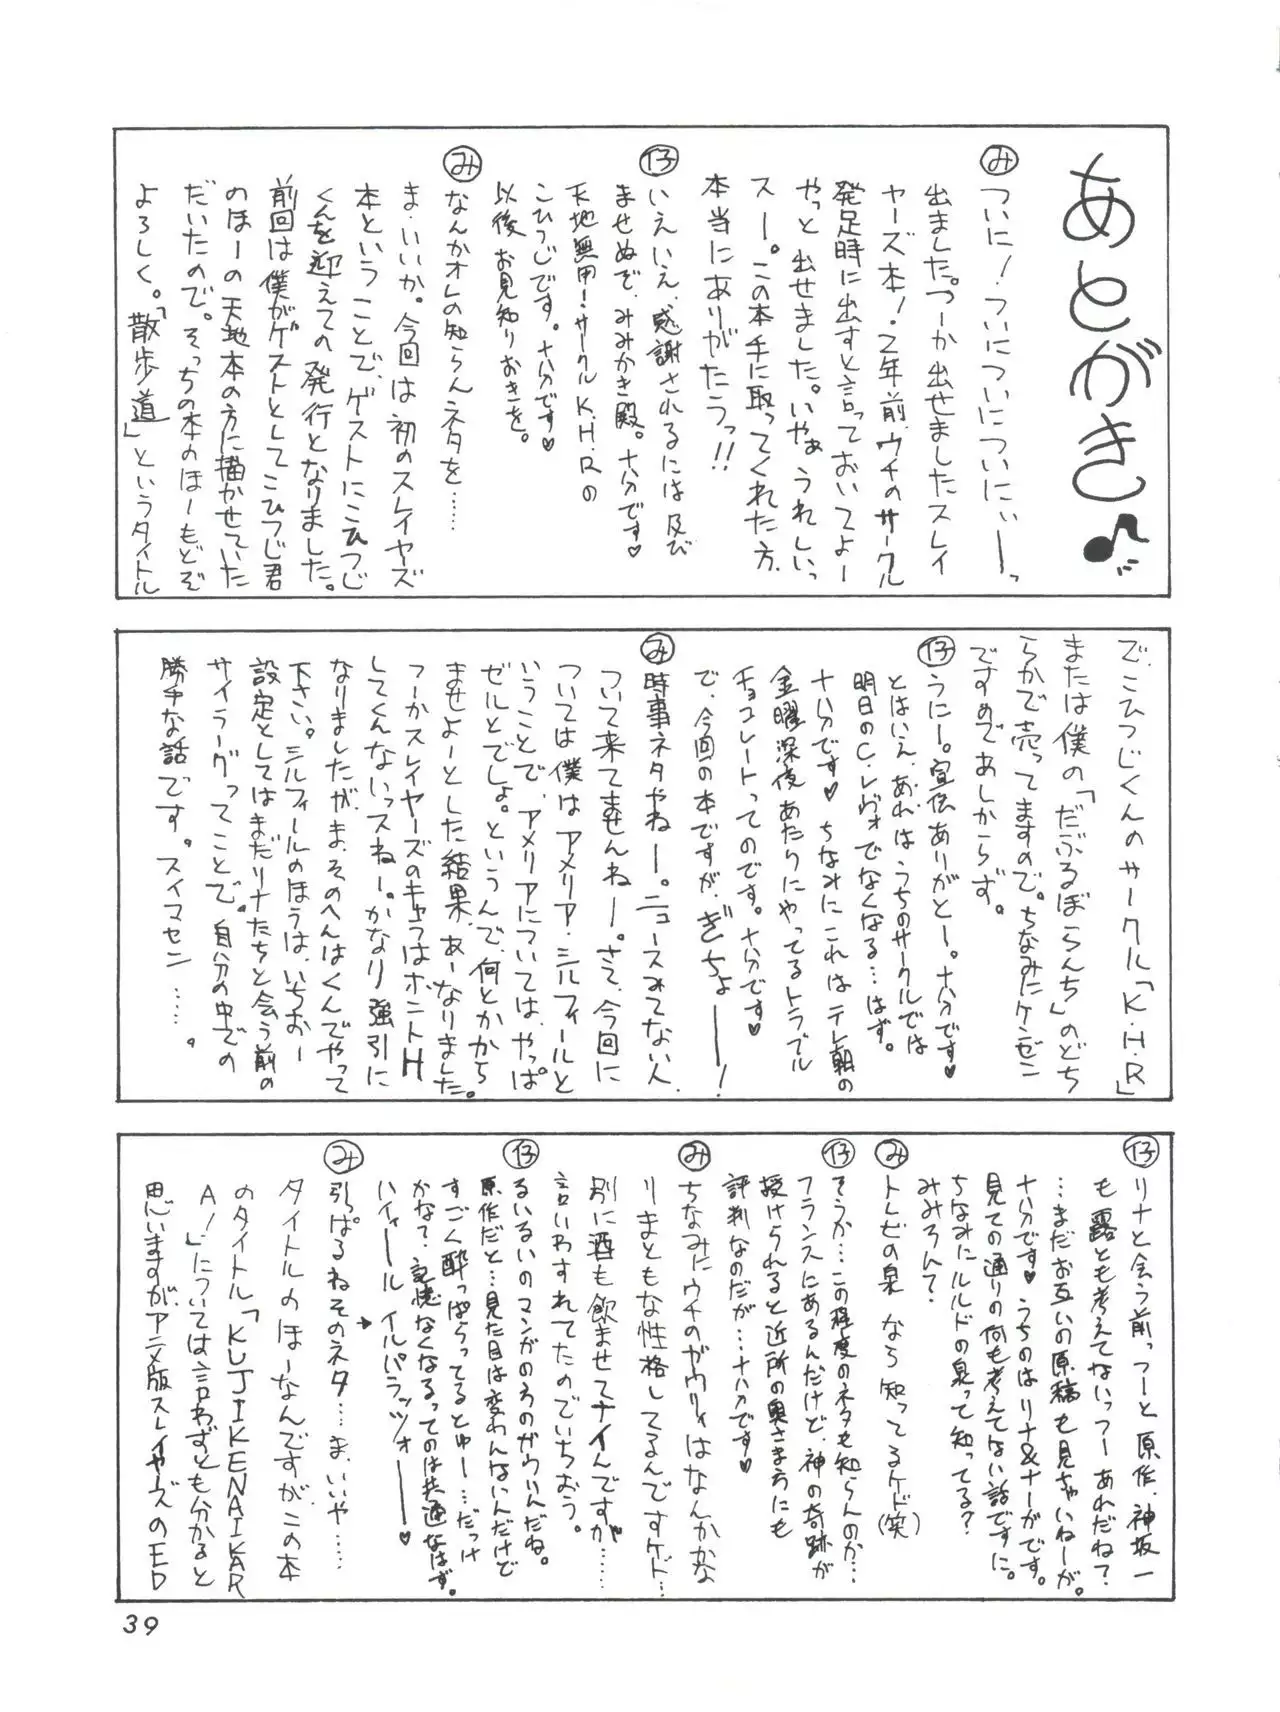 あとがき♪
み
ついに！ついについについにぃーっ
出ました。つーか出せましたスレイ
ヤーズ本！・2年前、ウチのサークル
発足時に出すと言っておいてよー
やっと出せました。いやぁうれしいっ
スー。この本手に取ってくれた方、
本当にありがたうっ!!
仔
いえいえ、感謝されるには及び
ませぬぞ、みみかき殿。十分です♥
天地無用！サークルK.H.Rの
こひつじです。十分です♥
以後お見知りおきを。
み
なんかオレの知らんネタを……
ま、いいか。今回は初のスレイヤーズ
本ということで、ゲストにこひつじ
くんを迎えての発行となりました。
前回は僕がゲストとしてこひつじ君
のほーの天地本の方に描かせていた
だいたので。そっちの本のほーもどぞ
よろしく。「散歩道」というタイトル
で、こひつじくんのサークル「K.H.R」
または僕の「だぶるぼらんち」のどち
らかで売ってますので。ちなみにケンゼン
ですのであしからず。
仔
うにー。宣伝ありがとー。十分です♥
とはいえ、あれはうちのサークルでは
明日のC.レヴォでなくなる…はず。
十分です♥ちなみにこれはテレ朝の
金曜深夜あたりにやってるトラブル
チョコレートってのです。十分です♥
で、今回の本ですが、ぎちょーーー！
み
時事ネタやねー。ニュースみてない人、
ついて来てませんねー。さて、今回に
ついては僕はアメリア・シルフィールと
いうことで、アメリアについては、やっぱ
ゼルとでしょ。というんで、何とかから
ませよーとした結果、あーなりました。
つーかスレイヤーズのキャラはホントH
してくんないっスねー。かなり強引に
なりましたが、ま、そのへんはくんでやって
下さい。シルフィールのほうは、いちおー
設定としてはまだリナたちと会う前の
サイラーグってことで。自分の中での
勝手な話です。スイマセン……。
仔
リナと会う前っつーと原作、神坂一
も露とも考えてないっつーあれだね？
…まだお互いの原稿も見ちゃいねーが。
十分です♥うちのはリナ&ナーガです。
見ての通りの何も考えてない話ですに。
ちなみにルルドの泉って知ってる？
みみろん？
み
トレビの泉なら知ってるケド（笑）
仔
そうか…この程度のネタも知らんのか…
フランスにあるんだけど、神の奇跡が
授けられると近所の奥さま方にも
評判なのだが…十分です♥
み
ちなみにウチのガウリィはなんかかな
りまともな性格してるんですケド…
別に酒も飲ませてナイんですが……
言いわすれてたのでいちおう。
仔
るいるいのマンガのうちのガウリんだね。
原作だと…見た目は変わんないんだけど
すごく酔っぱらってるとゅー…だっけ
かな？記憶なくなるってのは共通なはず。
ハイィールイルパラッツォーーー♥
み
引っぱるねそのネタ……ま、いいや……
タイトルのほーなんですが、この本
のタイトル「KUJIKENAIKAR
A！」については言わずとも分かると
思いますが、アニメ版スレイヤーズのED
39